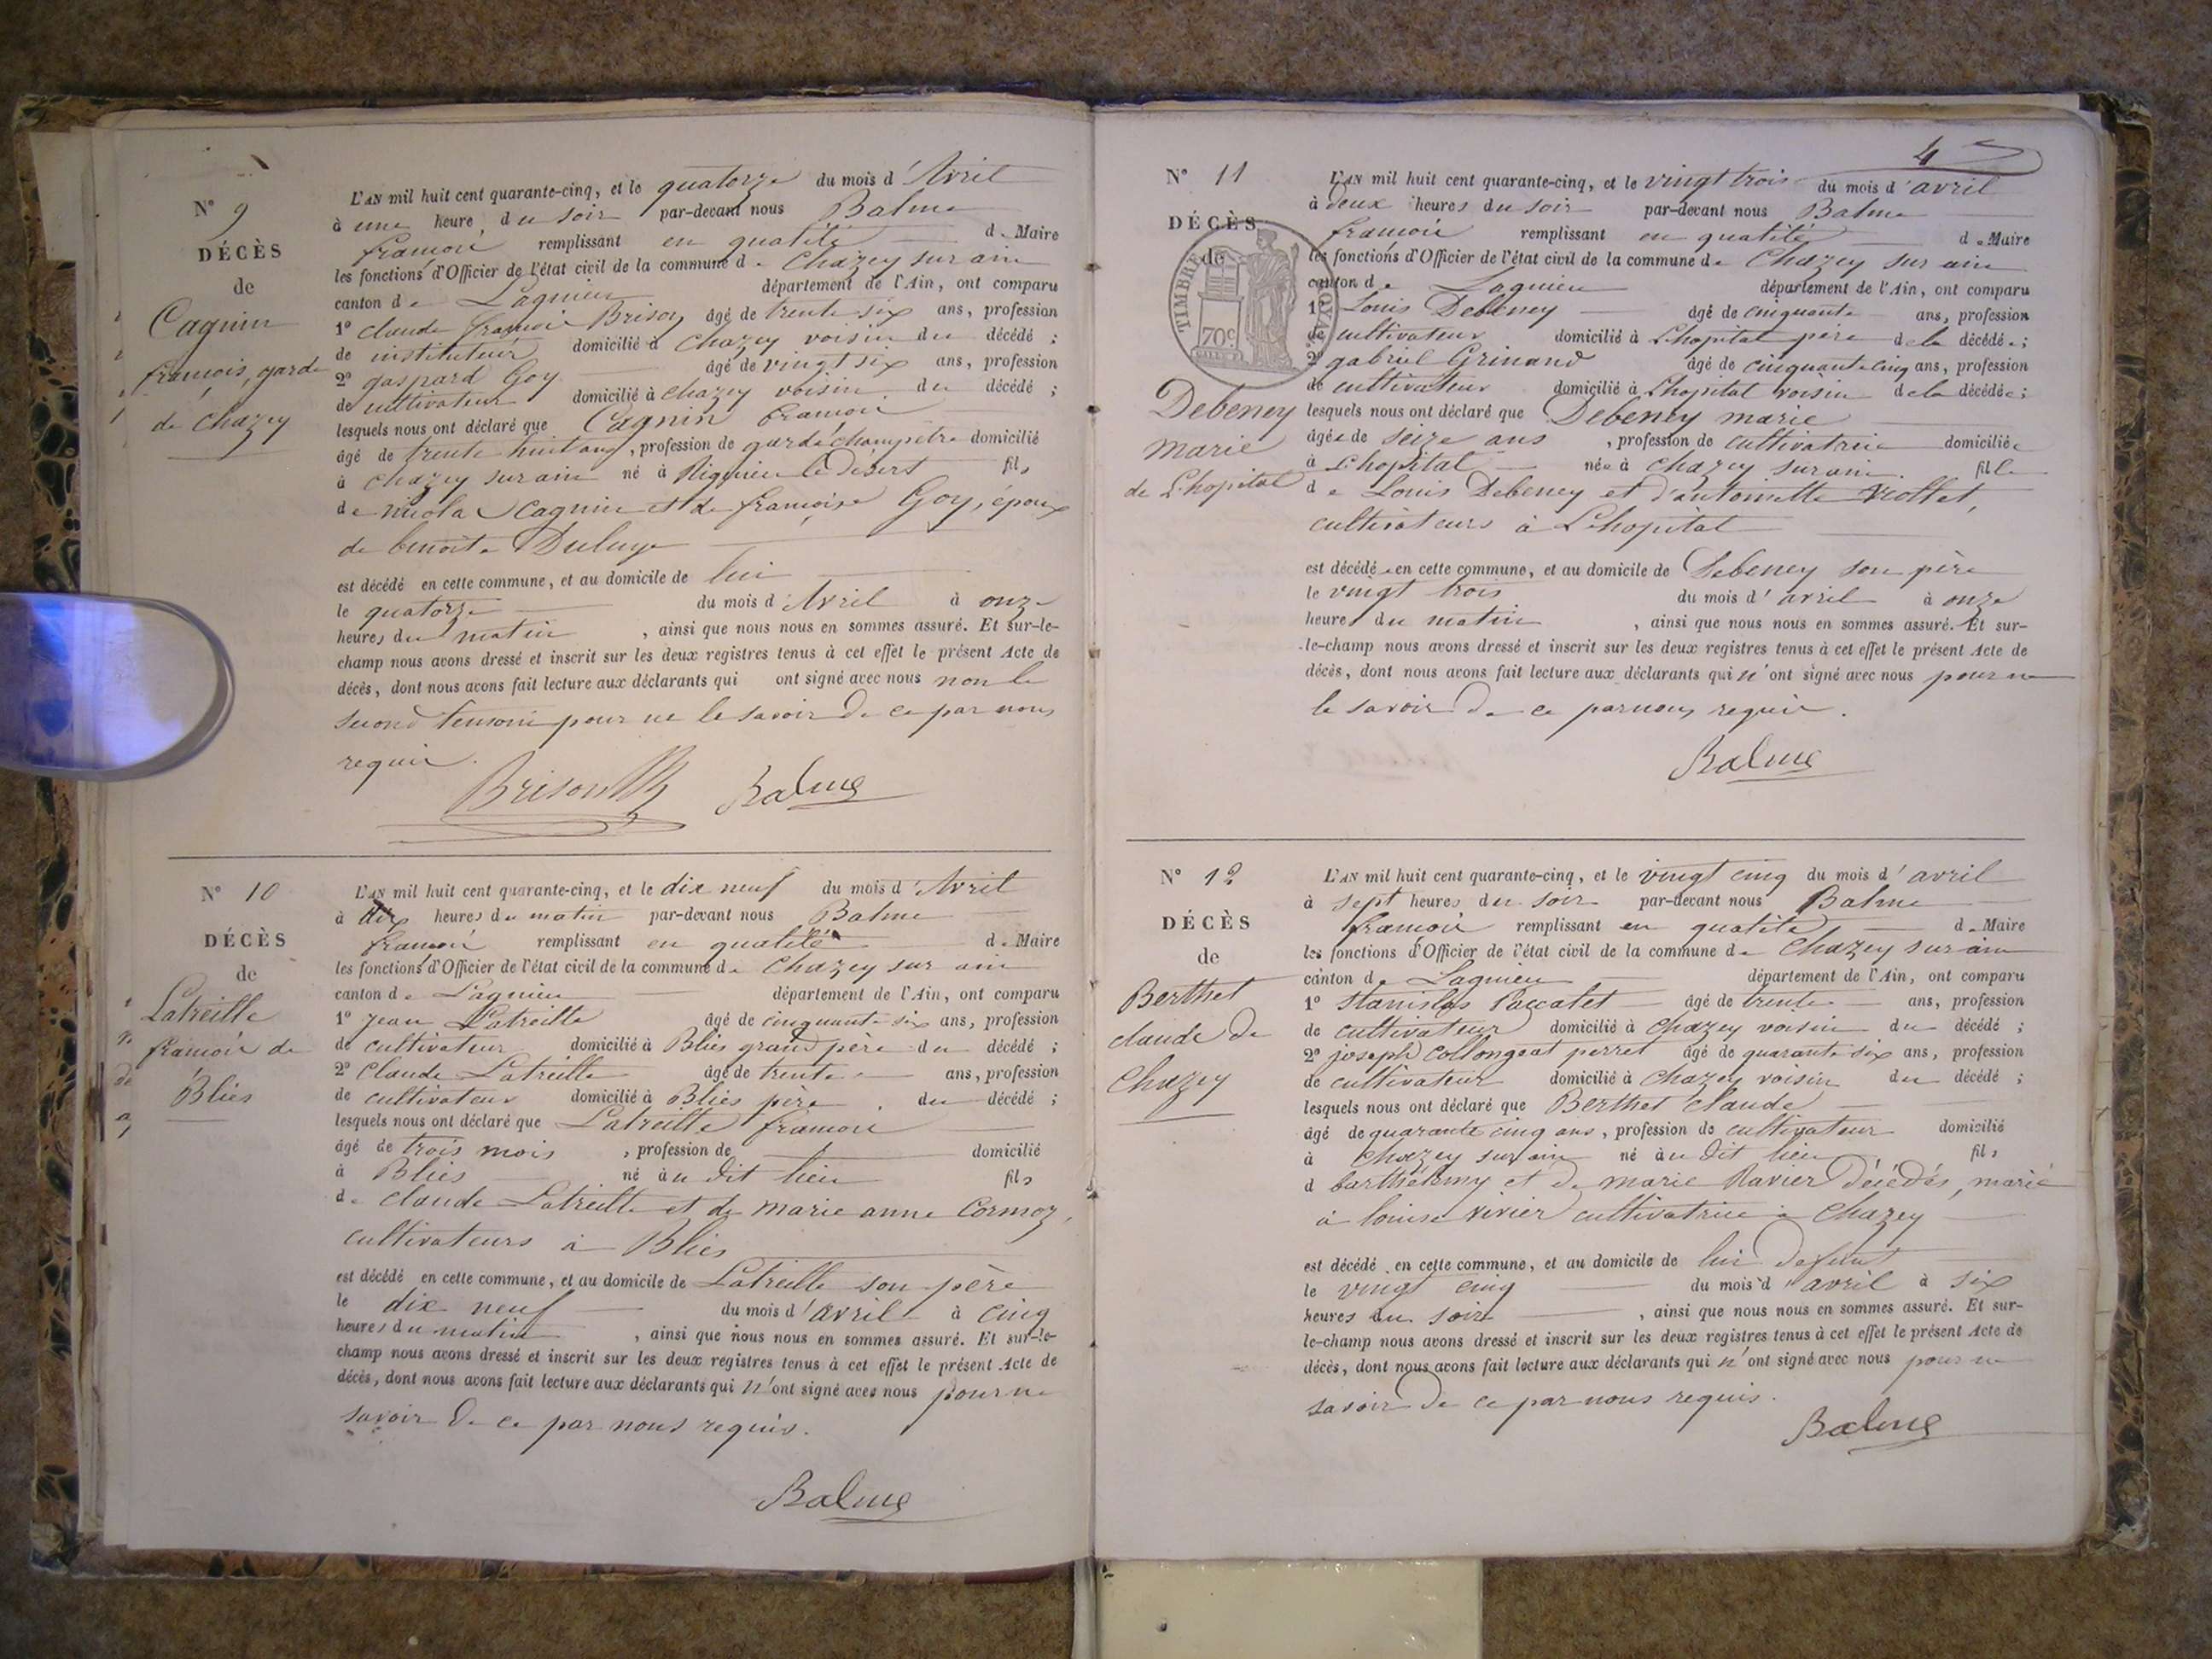 N° 9
DÉCÈS
de
Cagnin
françois, garde
de Chazey
L'AN mil huit cent quarante-cinq, et le quatorze du mois d'Avril
à une heure du soir par-devant nous Balme
françois remplissant en qualité de Maire
les fonctions d'Officier de l'état civil de la commune de Chazey sur ain
canton de Lagnieu département de l'Ain, ont comparu
1° claude françois Brison âgé de trente six ans, profession
de instituteur domicilié à Chazey voisin du décédé ;
2° gaspard Goy âgé de vingt six ans, profession
de cultivateur domicilié à chazey voisin du décédé ;
lesquels nous ont déclaré que Cagnin françois
âgé de trente huit ans, profession de garde champêtre domicilié
à chazey sur ain né à Rignieu le désert fils
de nicolas Cagnin et de françoise Goy, époux
de benoite
est décédé en cette commune, et au domicile de lui
le quatorze du mois d'Avril à onze
heures du matin, ainsi que nous nous en sommes assuré. Et sur-le-
champ nous avons dressé et inscrit sur les deux registres tenus à cet effet le présent Acte de
décès, dont nous avons fait lecture aux déclarants qui ont signé avec nous non le
second temoin pour ne le savoir de ce par nous
requis.
Brison Balme
N° 10
DÉCÈS
de
Latreille
françois de
Bliés
L'AN mil huit cent quarante-cinq, et le dix neuf du mois d'Avril
à dix heures du matin par-devant nous Balme
françois remplissant en qualité de Maire
les fonctions d'Officier de l'état civil de la commune de Chazey sur ain
canton de Lagnieu département de l'Ain, ont comparu
1° jean Latreille âgé de cinquante six ans, profession
de cultivateur domicilié à Bliés grand père du décédé ;
2° Claude Latreille âgé de trente ans, profession
de cultivateur domicilié à Bliés père du décédé ;
lesquels nous ont déclaré que Latreille françois
âgé de trois mois, profession de domicilié
à Bliés né au dit lieu fils
de claude Latreille et de marie anne Cormoz,
cultivateurs à Bliés
est décédé en cette commune, et au domicile de Latreille son père
le dix neuf du mois d'avril à cinq
heures du matin, ainsi que nous nous en sommes assuré. Et sur-le-
champ nous avons dressé et inscrit sur les deux registres tenus à cet effet le présent Acte de
décès, dont nous avons fait lecture aux déclarants qui n'ont signé avec nous pour ne
savoir de ce par nous requis.
Balme
4
N° 11
DÉCÈS
de
TIMBRE ROYAL
70c
Debeney
marie
de L'hopital
L'AN mil huit cent quarante-cinq, et le vingt trois du mois d'avril
à deux heures du soir par-devant nous Balme
françois remplissant en qualité de Maire
les fonctions d'Officier de l'état civil de la commune de Chazey sur ain
canton de Lagnieu département de l'Ain, ont comparu
1° Louis Debeney âgé de cinquante ans, profession
de cultivateur domicilié à L'hopital père de la décédée ;
2° gabriel Grinand âgé de cinquante cinq ans, profession
de cultivateur domicilié à L'hopital voisin de la décédée ;
lesquels nous ont déclaré que Debeney marie
âgée de seize ans, profession de cultivatrice domiciliée
à L'hopital née à chazey sur ain fille
de Louis Debeney et d'antoinette Viollet,
cultivateurs à L'hopital
est décédée en cette commune, et au domicile de Debeney son père
le vingt trois du mois d'avril à onze
heures du matin, ainsi que nous nous en sommes assuré. Et sur-
le-champ nous avons dressé et inscrit sur les deux registres tenus à cet effet le présent Acte de
décès, dont nous avons fait lecture aux déclarants qui n'ont signé avec nous pour ne
le savoir de ce par nous requis.
Balme
N° 12
DÉCÈS
de
Berthet
claude de
Chazey
L'AN mil huit cent quarante-cinq, et le vingt cinq du mois d'avril
à sept heures du soir par-devant nous Balme
françois remplissant en qualité de Maire
les fonctions d'Officier de l'état civil de la commune de Chazey sur ain
canton de Lagnieu département de l'Ain, ont comparu
1° Stanislas Paccalet âgé de trente ans, profession
de cultivateur domicilié à Chazey voisin du décédé ;
2° joseph Collongeat perret âgé de quarante six ans, profession
de cultivateur domicilié à Chazey voisin du décédé ;
lesquels nous ont déclaré que Berthet claude
âgé de quarante cinq ans, profession de cultivateur domicilié
à Chazey sur ain né au dit lieu fils
d barthélemy et de marie Ravier décédés, marié
à louise vivier cultivatrice à Chazey
est décédé en cette commune, et au domicile de lui defunt
le vingt cinq du mois d'avril à six
heures du soir, ainsi que nous nous en sommes assuré. Et sur-
le-champ nous avons dressé et inscrit sur les deux registres tenus à cet effet le présent Acte de
décès, dont nous avons fait lecture aux déclarants qui n'ont signé avec nous pour ne
savoir de ce par nous requis.
Balme